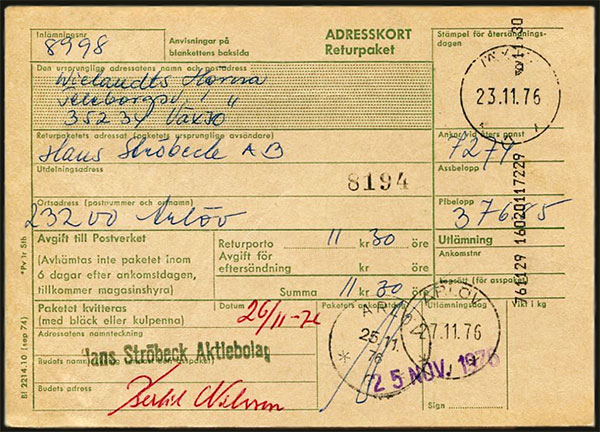 Inlämningsnr
8998
Anvisningar på
blankettens baksida
ADRESSKORT
Returpaket
Stämpel för återsändnings-
dagen
VÄXJÖ
23.11.76
Den ursprunglige adressatens namn och postadress
Wielandts Hörna
Teleborgsv. 1
352 34 Växjö
Returpaketets adressat (paketets ursprunglige avsändare)
Hans Ströbeck AB
Ankomstnr
Assbelopp
Utdelningsadress
8194
Ortsadress (postnummer och ortnamn)
232 00 Arlöv
Pfbelopp
Avgift till Postverket
(Avhämtas inte paketet inom
6 dagar efter ankomstdagen,
tillkommer magasinshyra)
Returporto 11 kr 30 öre
Avgift för
eftersändning kr öre
Summa 11 kr 30 öre
Utlämning
Ankomstnr
761129 16020117229
Paketet kvitteras
(med bläck eller kulpenna)
Datum
26/11-76
Paketets ankomstdag
Utlämningsdag
Vikt i kg
Adressatens namnteckning
Hans Ströbeck Aktiebolag
ARLÖV
25.11.
76
ARLÖV
27.11.76
25 NOV. 1976
Budets adress
Bertil Nilsson
Sign
Bl 2214.10 (sep 74)